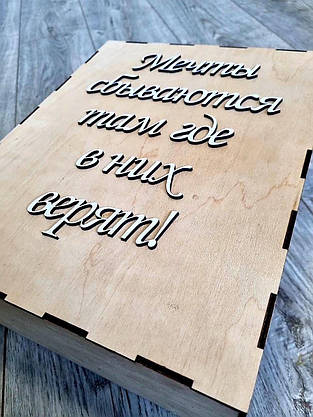 Мечты
сбываются
там где
в них
верят!